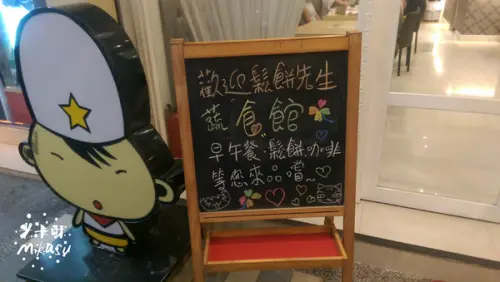 歡迎鬆餅先生
蔬食館
早午餐.鬆餅咖啡
等您來品嚐~
Mikasy